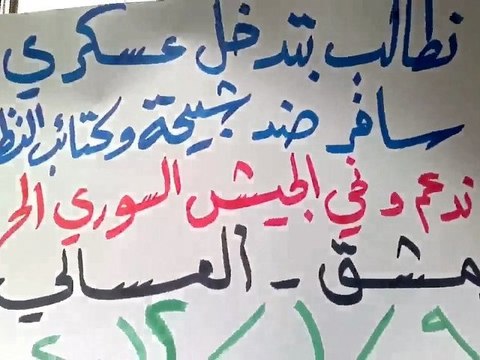 نطالب بتدخل عسكري
سافر ضد شبيحة وكتائب النظ
ندعم و نحي الجيش السوري الحر
دمشق - العسالي
٩ / ١ / ٢٠١٢